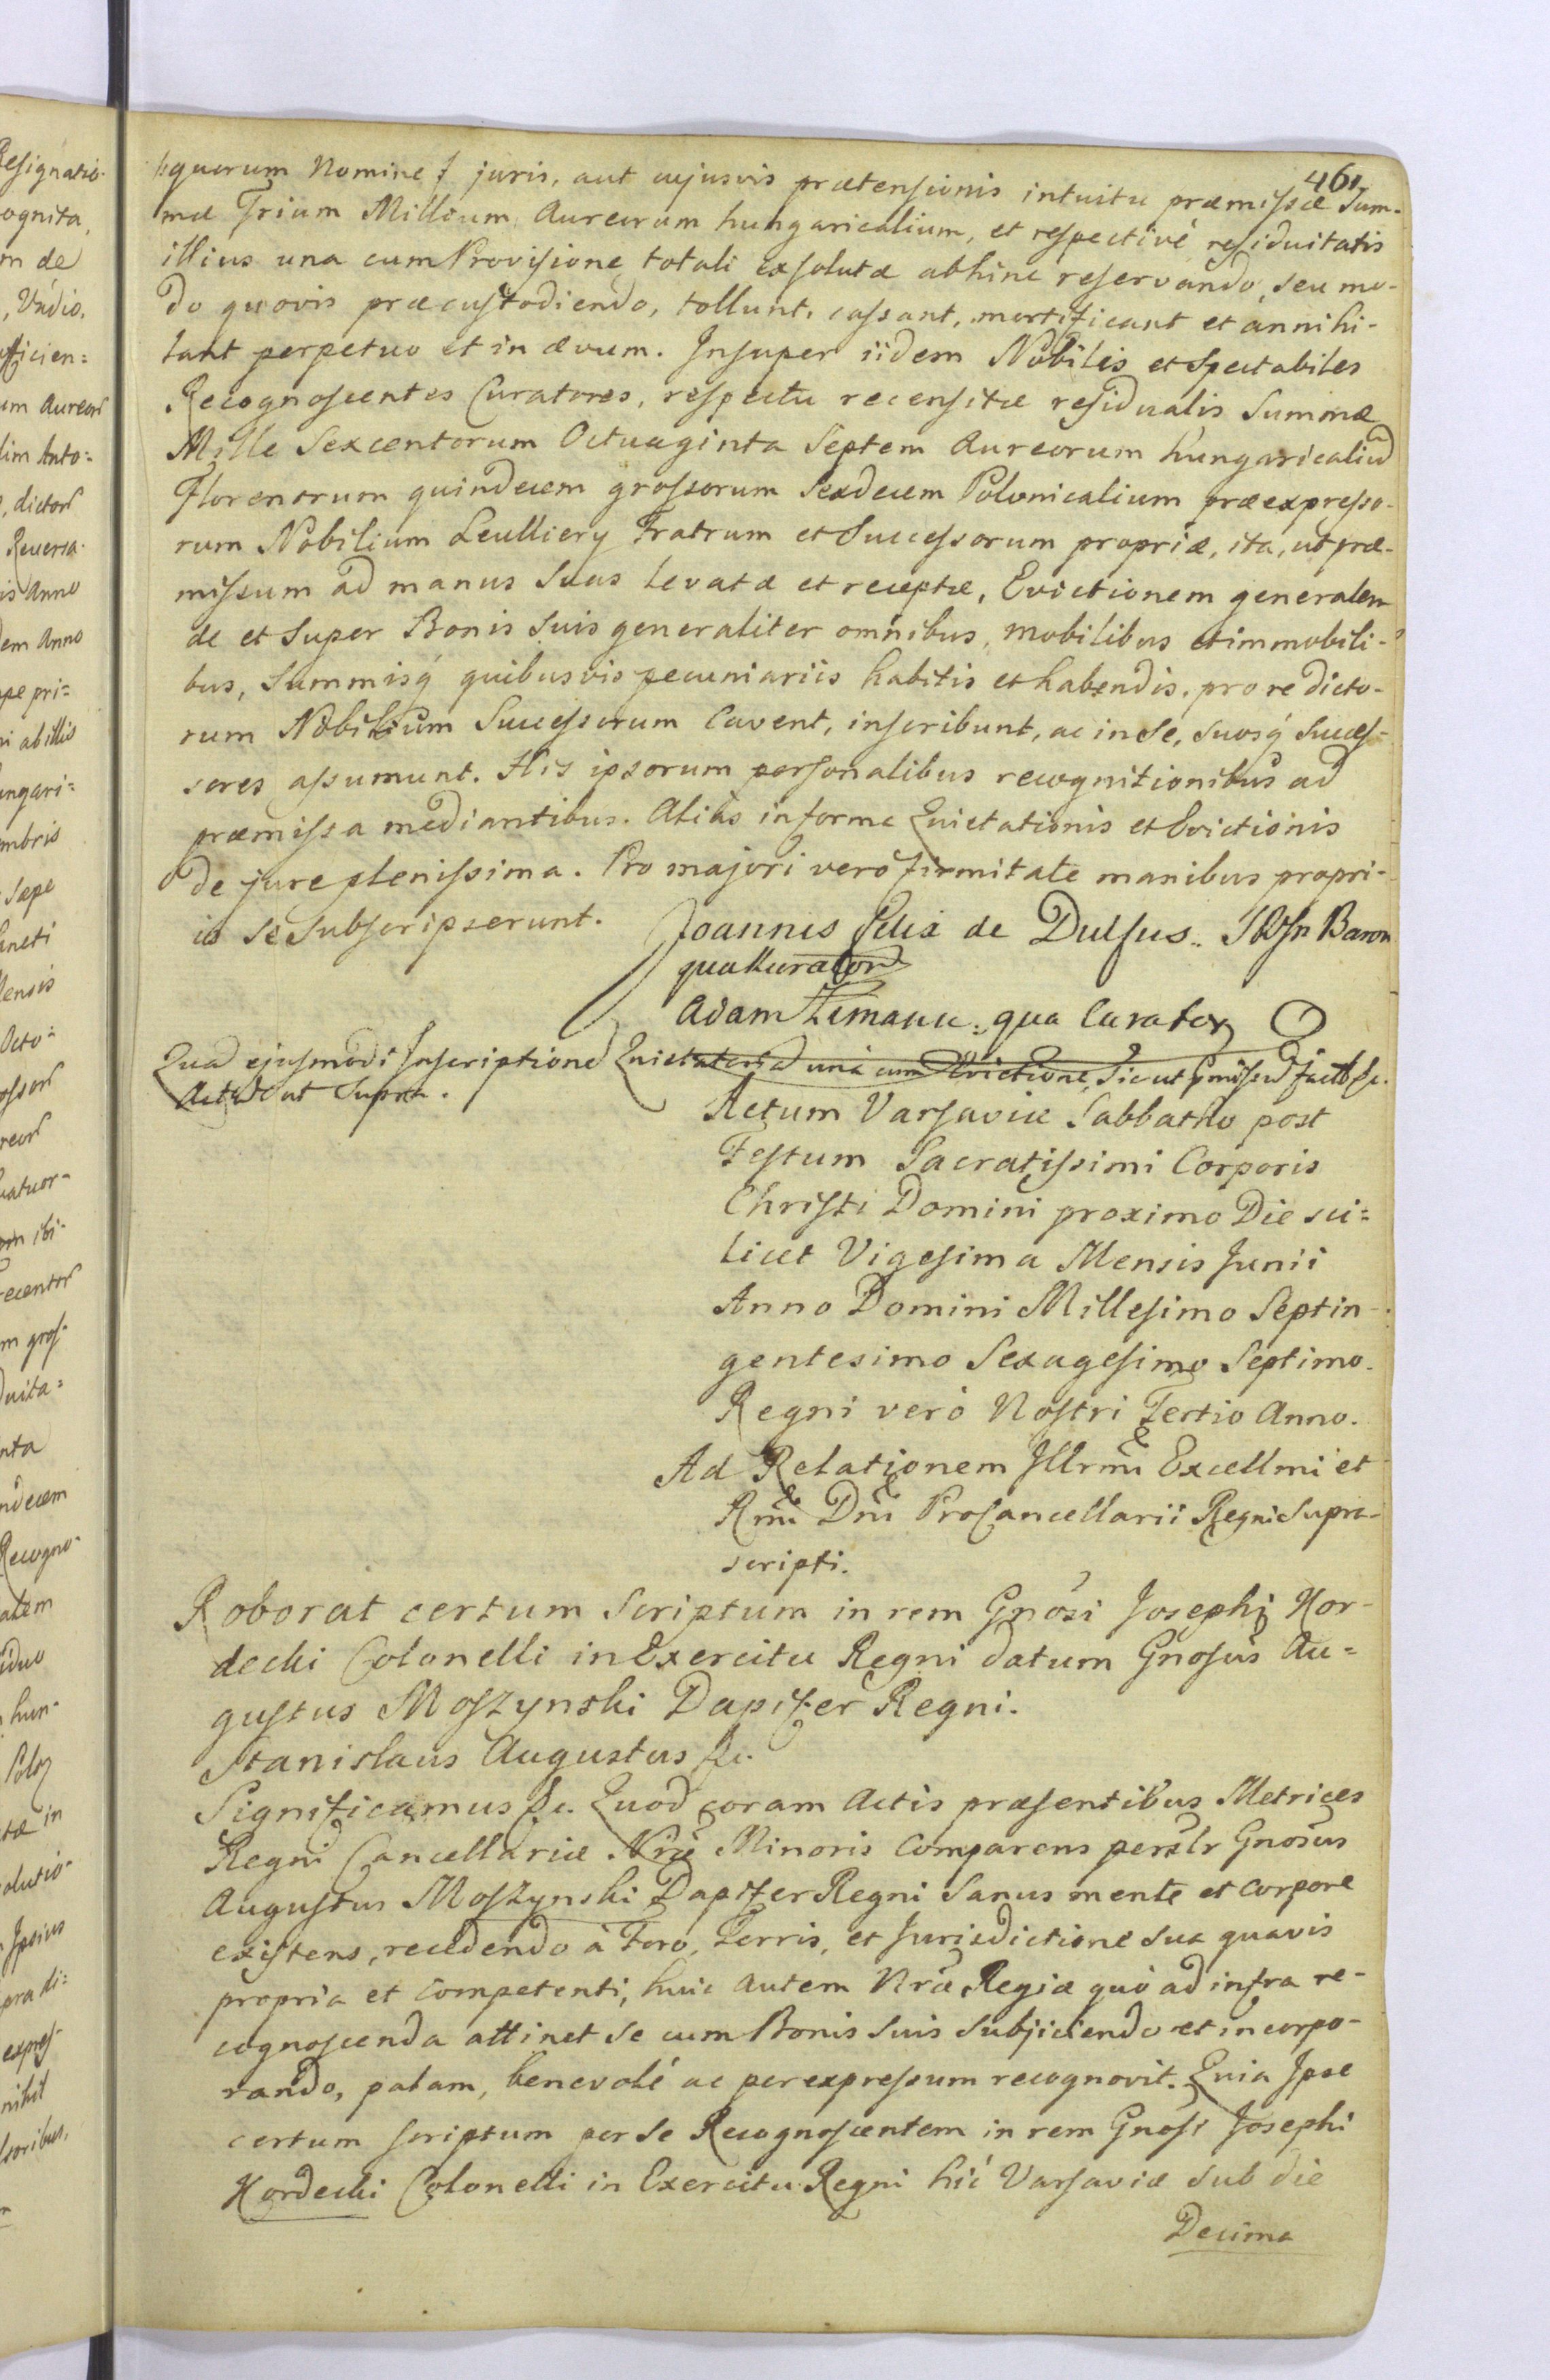 461.
quorum Nomine / juris, aut cujusvis prætensionis intuitu præmissæ Sum-
mæ Trium Millium Aureorum hungaricalium, et respectivè residuitatis
illius una cum Provisione totali exsolutæ abhinc reservando, seu mo-
do quovis præcustodiendo, tollunt, cassant, mortificant et annihi-
lant perpetuo et in ævum. Insuper iidem Nobilis et Spectabiles
Recognoscentes Curatores, respectu recensitæ residualis Summæ
Mille Sexcentorum Octuaginta Septem Aureorum hungaricaliu
Florenorum quindecem grossorum Sexdecem Polonicalium præexpresso-
rum Nobilium Leulliery Fratrum et Successorum propriæ, ita, ut præ-
missum ad manus Suas levatæ et receptæ, Evictionem generalem
de et Super Bonis Suis generaliter omnibus, mobilibus et immobili-
bus, Summisq́ quibusvis pecuniariis habitis et habendis, pro re dicto-
rum Nobilium Successorum Cavent, inscribunt, ac in se, suosq́ Succes-
sores assumunt. His ipsorum personalibus recognitionibus ad
præmissa mediantibus. Aliàs in forma Quietationis et Evictionis
de jure plenissima. Pro majori verò firmitate manibus propri-
is se subscripserunt.
Joannes Felix de Dulfus.. Baron
qua Kurator
Adam Zimann: qua Curator
Quad ejusmodi Inscriptione Quietatoria unà cum Evictione, Sicut pmissu facto &c.
Actu ut Supra.
Actum Varsaviæ Sabbatho post
Festum Sacratissimi Corporis
Christi Domini proximo Die sci=
licet Vigesima Mensis Junii
Anno Domini Millesimo Septin-
gentesimo Sexagesimo Septimo.
Regni verò Nostri Tertio Anno.
Ad Relationem Illrmi Excellmi et
Rmi Dni ProCancellarii Regni Supra-
scripti.
Roborat certum Scriptum in rem Gnosi Josephi Hor-
decki Colonelli in Exercitu Regni datum Gnosus Au=
gustus Moszynski Dapifer Regni.
Stanislaus Augustus &c.
Significamus &c. Quod coram Actis præsentibus Metrices
Regni Cancellariæ Nræ Minoris Comparens persnlr Gnosus
Augustus Moszynski Dapifer Regni Sanus mente et corpore
existens, recedendo à Foro, Terris, et Jurisdictione sua quavis
propria et competenti, huic autem Nræ Regiæ quò ad infra re-
cognoscenda attinet Se cum Bonis suis Subjiciendo et incorpo-
rando, palam, benevolè ac per expressum recognovit. Quia Ipse
certum scriptum per Se Recognoscentem in rem Gnosi Josephi
Hordecki Colonelli in Exercitu Regni hìc Varsaviæ Sub die
Decima